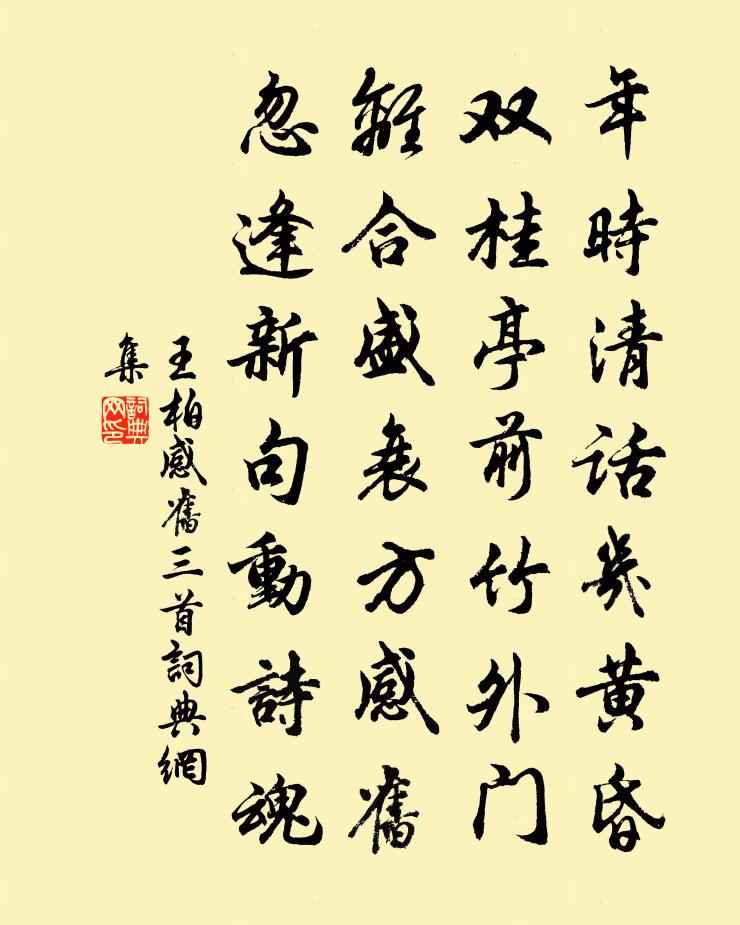 年時清話幾黃昏
双桂亭前竹外門
離合盛衰方感舊
忽逢新句動詩魂
王柏感舊三首詞典網
集
詞典
网印